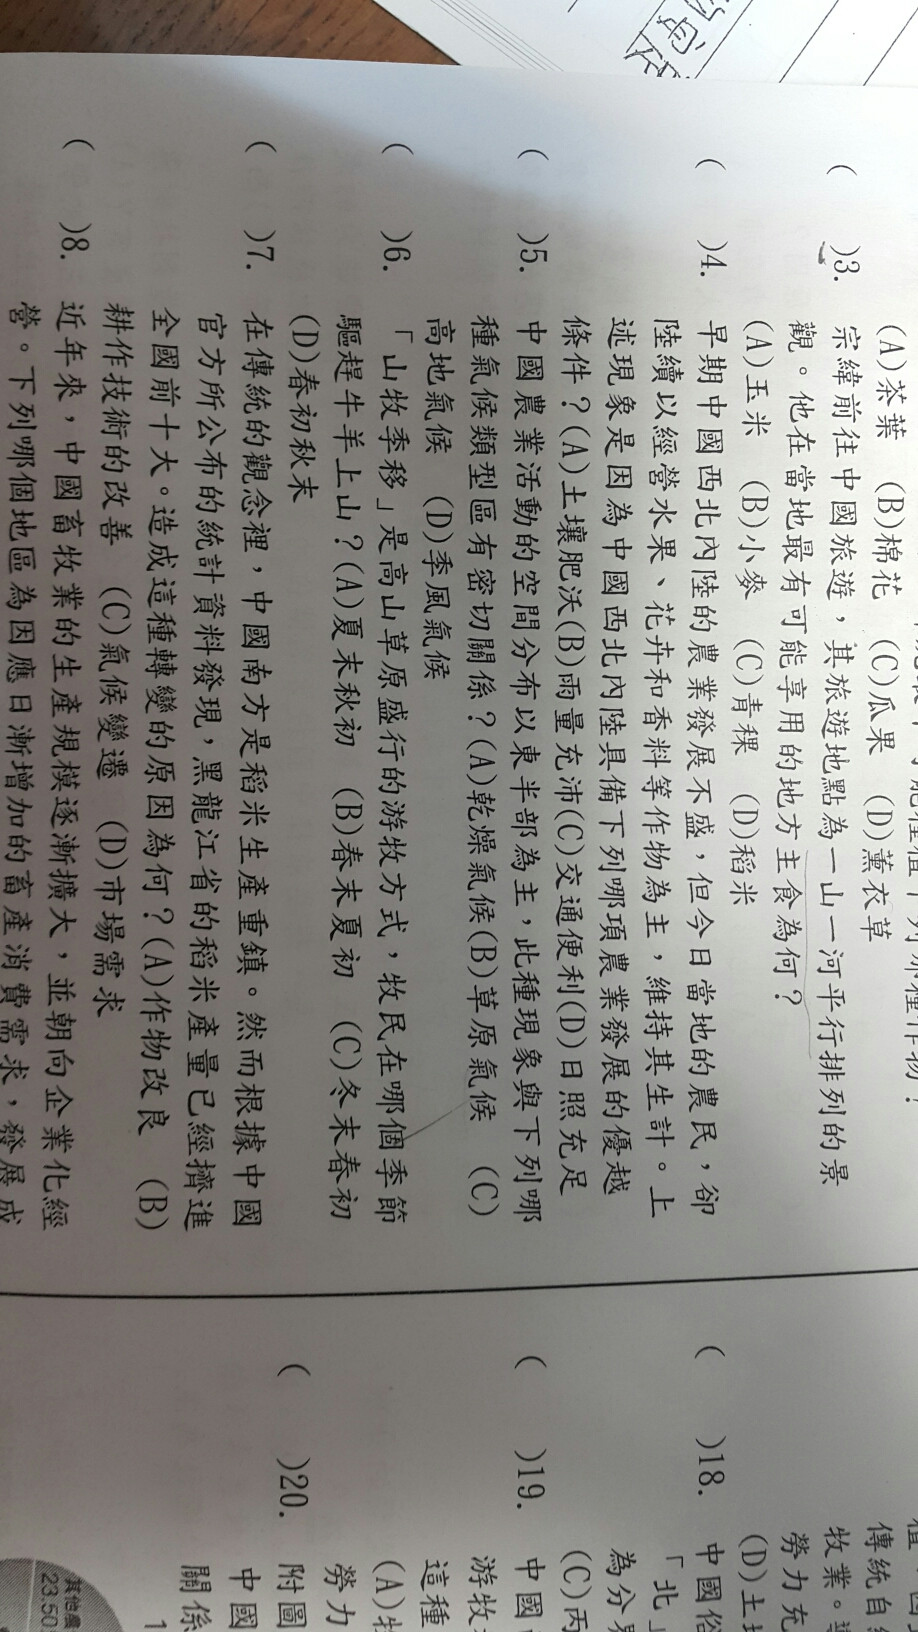 (A)茶葉 (B)棉花 (C)瓜果 (D)薰衣草
( )3. 宗緯前往中國旅遊，其旅遊地點為一山一河平行排列的景
觀。他在當地最有可能享用的地方主食為何？
(A)玉米 (B)小麥 (C)青稞 (D)稻米
( )4. 早期中國西北內陸的農業發展不盛，但今日當地的農民，卻
陸續以經營水果、花卉和香料等作物為主，維持其生計。上
述現象是因為中國西北內陸具備下列哪項農業發展的優越
條件？(A)土壤肥沃(B)雨量充沛(C)交通便利(D)日照充足
( )5. 中國農業活動的空間分布以東半部為主，此種現象與下列哪
種氣候類型區有密切關係？(A)乾燥氣候(B)草原氣候 (C)
高地氣候 (D)季風氣候
( )6. 「山牧季移」是高山草原盛行的游牧方式，牧民在哪個季節
驅趕牛羊上山？(A)夏末秋初 (B)春末夏初 (C)冬末春初
(D)春初秋末
( )7. 在傳統的觀念裡，中國南方是稻米生產重鎮。然而根據中國
官方所公布的統計資料發現，黑龍江省的稻米產量已經擠進
全國前十大。造成這種轉變的原因為何？(A)作物改良 (B)
耕作技術的改善 (C)氣候變遷 (D)市場需求
( )8. 近年來，中國畜牧業的生產規模逐漸擴大，並朝向企業化經
營。下列哪個地區為因應日漸增加的畜產消費需求，發展成
傳統自
牧業。
勞力充
(D)土
( )18. 中國俗
「北」
為分界
(C)丙
( )19. 中國
游牧
這種
(A)牧
勞力
( )20. 附圖
中國
關係
1
其他
23.50